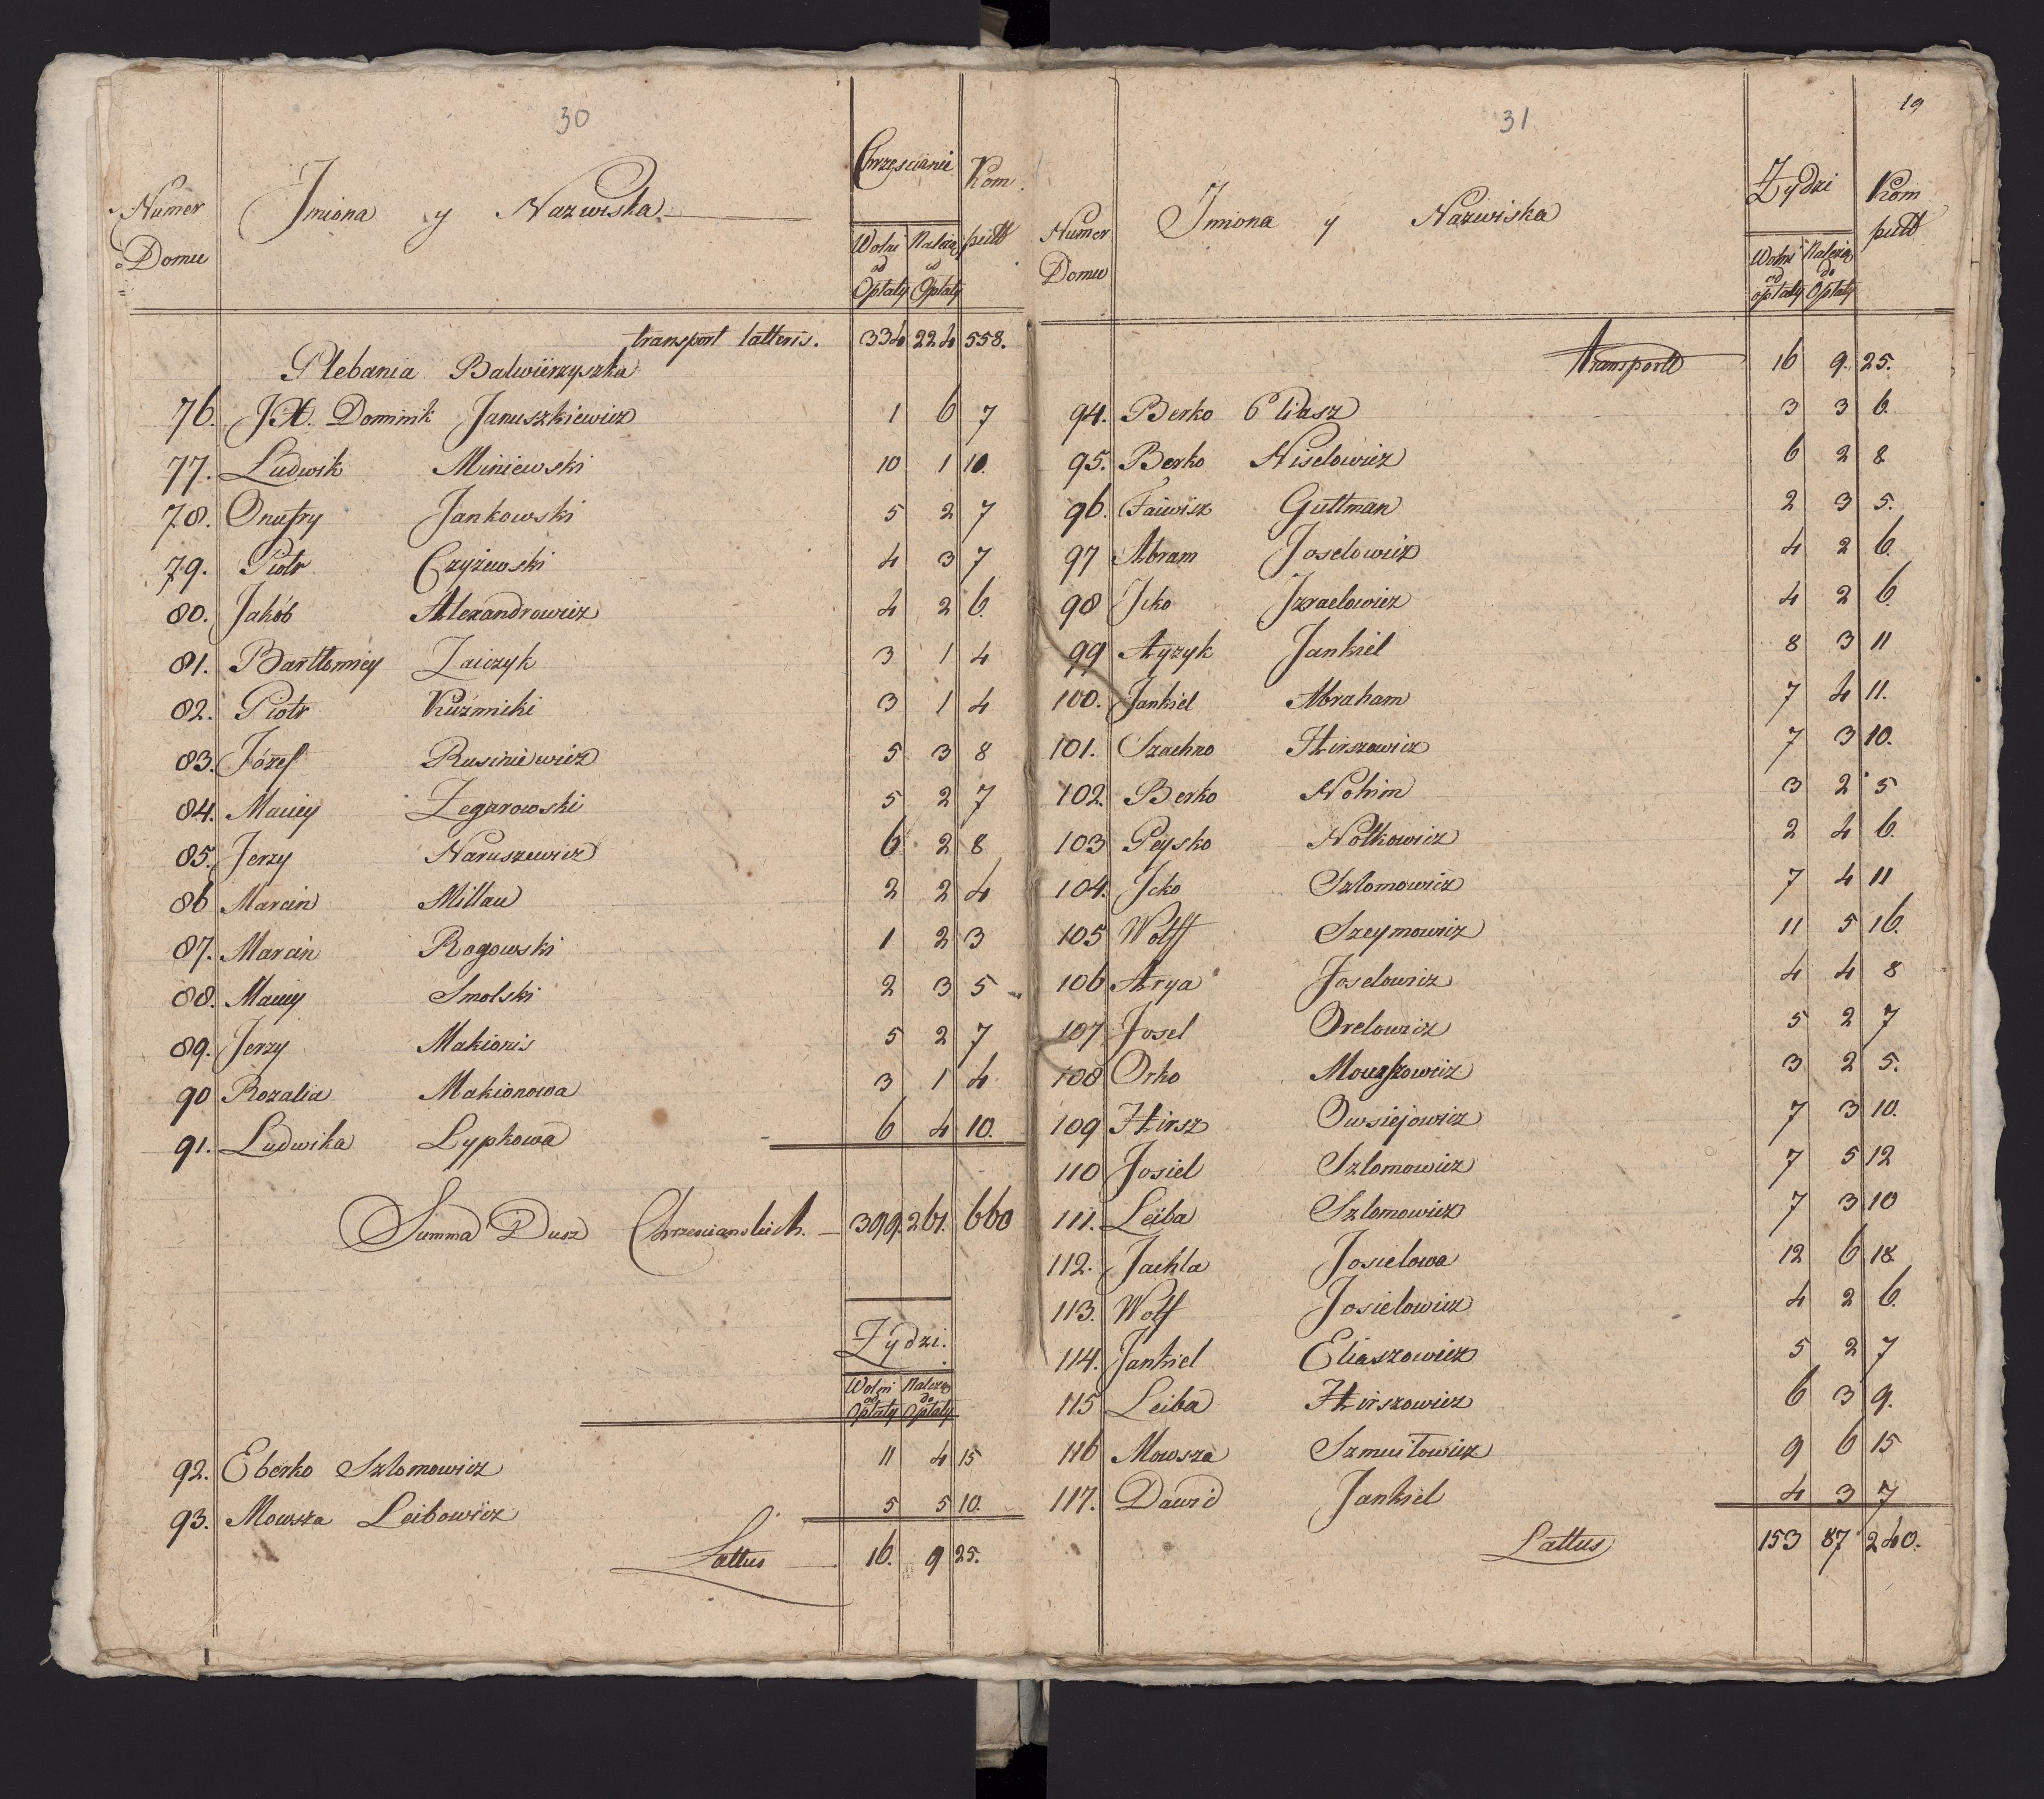 30
Numer Domu
Jmiona y Nazwiska
Chrzescianie
Kom putt
Wolni od Opłaty
Należą do Opłaty
transport latteris. 334 224 558.
Plebania Balwierzyszka
76. JX. Dominik Januszkiewicz 1 6 7
77. Ludwik Miniewski 10 1 10.
78. Onufry Jankowski 5 2 7
79. Piotr Czyżewski 4 3 7
80. Jakób Alexandrowicz 4 2 6.
81. Bartłomiey Zaiczyk 3 1 4
82. Piotr Kuźmicki 3 1 4
83. Józef Rusiniewicz 5 3 8
84. Maciey Zegarowski 5 2 7
85. Jerzy Naruszewicz 6 2 8
86 Marcin Millau 2 2 4
87. Marcin Rogowski 1 2 3
88. Maciey Smolski 2 3 5
89. Jerzy Makionis 5 2 7
90 Rozalia Makionowa 3 1 4
91. Ludwika Lypkowa 6 4 10.
Summa Dusz Chrzescianskich. 399. 261. 660
Żydzi.
Wolni od Opłaty
Należą do Opłaty
92. Eberko Szlomowicz 11 4 15
93. Mowsza Leibowicz 5 5 10.
Lattus 16. 9 25.
19
31
Numer Domu
Jmiona y Nazwiska
Żydzi
Kom putt
Wolni od opłaty
Należą do Opłaty
transportt 16 9. 25.
94. Berko Eliasz 3 3 6.
95. Berko Niselowicz 6 2 8
96. Faiwisz Guttman 2 3 5.
97 Abram Joselowicz 4 2 6.
98 Jcko Jzraelowicz 4 2 6.
99 Ayzyk Jankiel 8 3 11
100. Jankiel Abraham 7 4 11.
101. Szachno Hirszowicz 7 3 10.
102. Berko Nohim 3 2 5
103 Peysko Notkowicz 2 4 6.
104. Jcko Szlomowicz 7 4 11
105 Wolff Szeymowicz 11 5 16.
106 Arya Joselowicz 4 4 8
107 Josel Orelowicz 5 2 7
108 Orko Mowszowicz 3 2 5.
109 Hirsz Owsiejowicz 7 3 10.
110 Josiel Szlomowicz 7 5 12
111. Leiba Szlomowicz 7 3 10
112. Jachla Josielowa 12 6 18
113. Wolf Josielowicz 4 2 6.
114. Jankiel Eliaszowicz 5 2 7
115 Leiba Hirszowicz 6 3 9.
116 Mowsza Szmuiłowicz 9 6 15
117. Dawid Jankiel 4 3 7
Lattus 153 87 240.